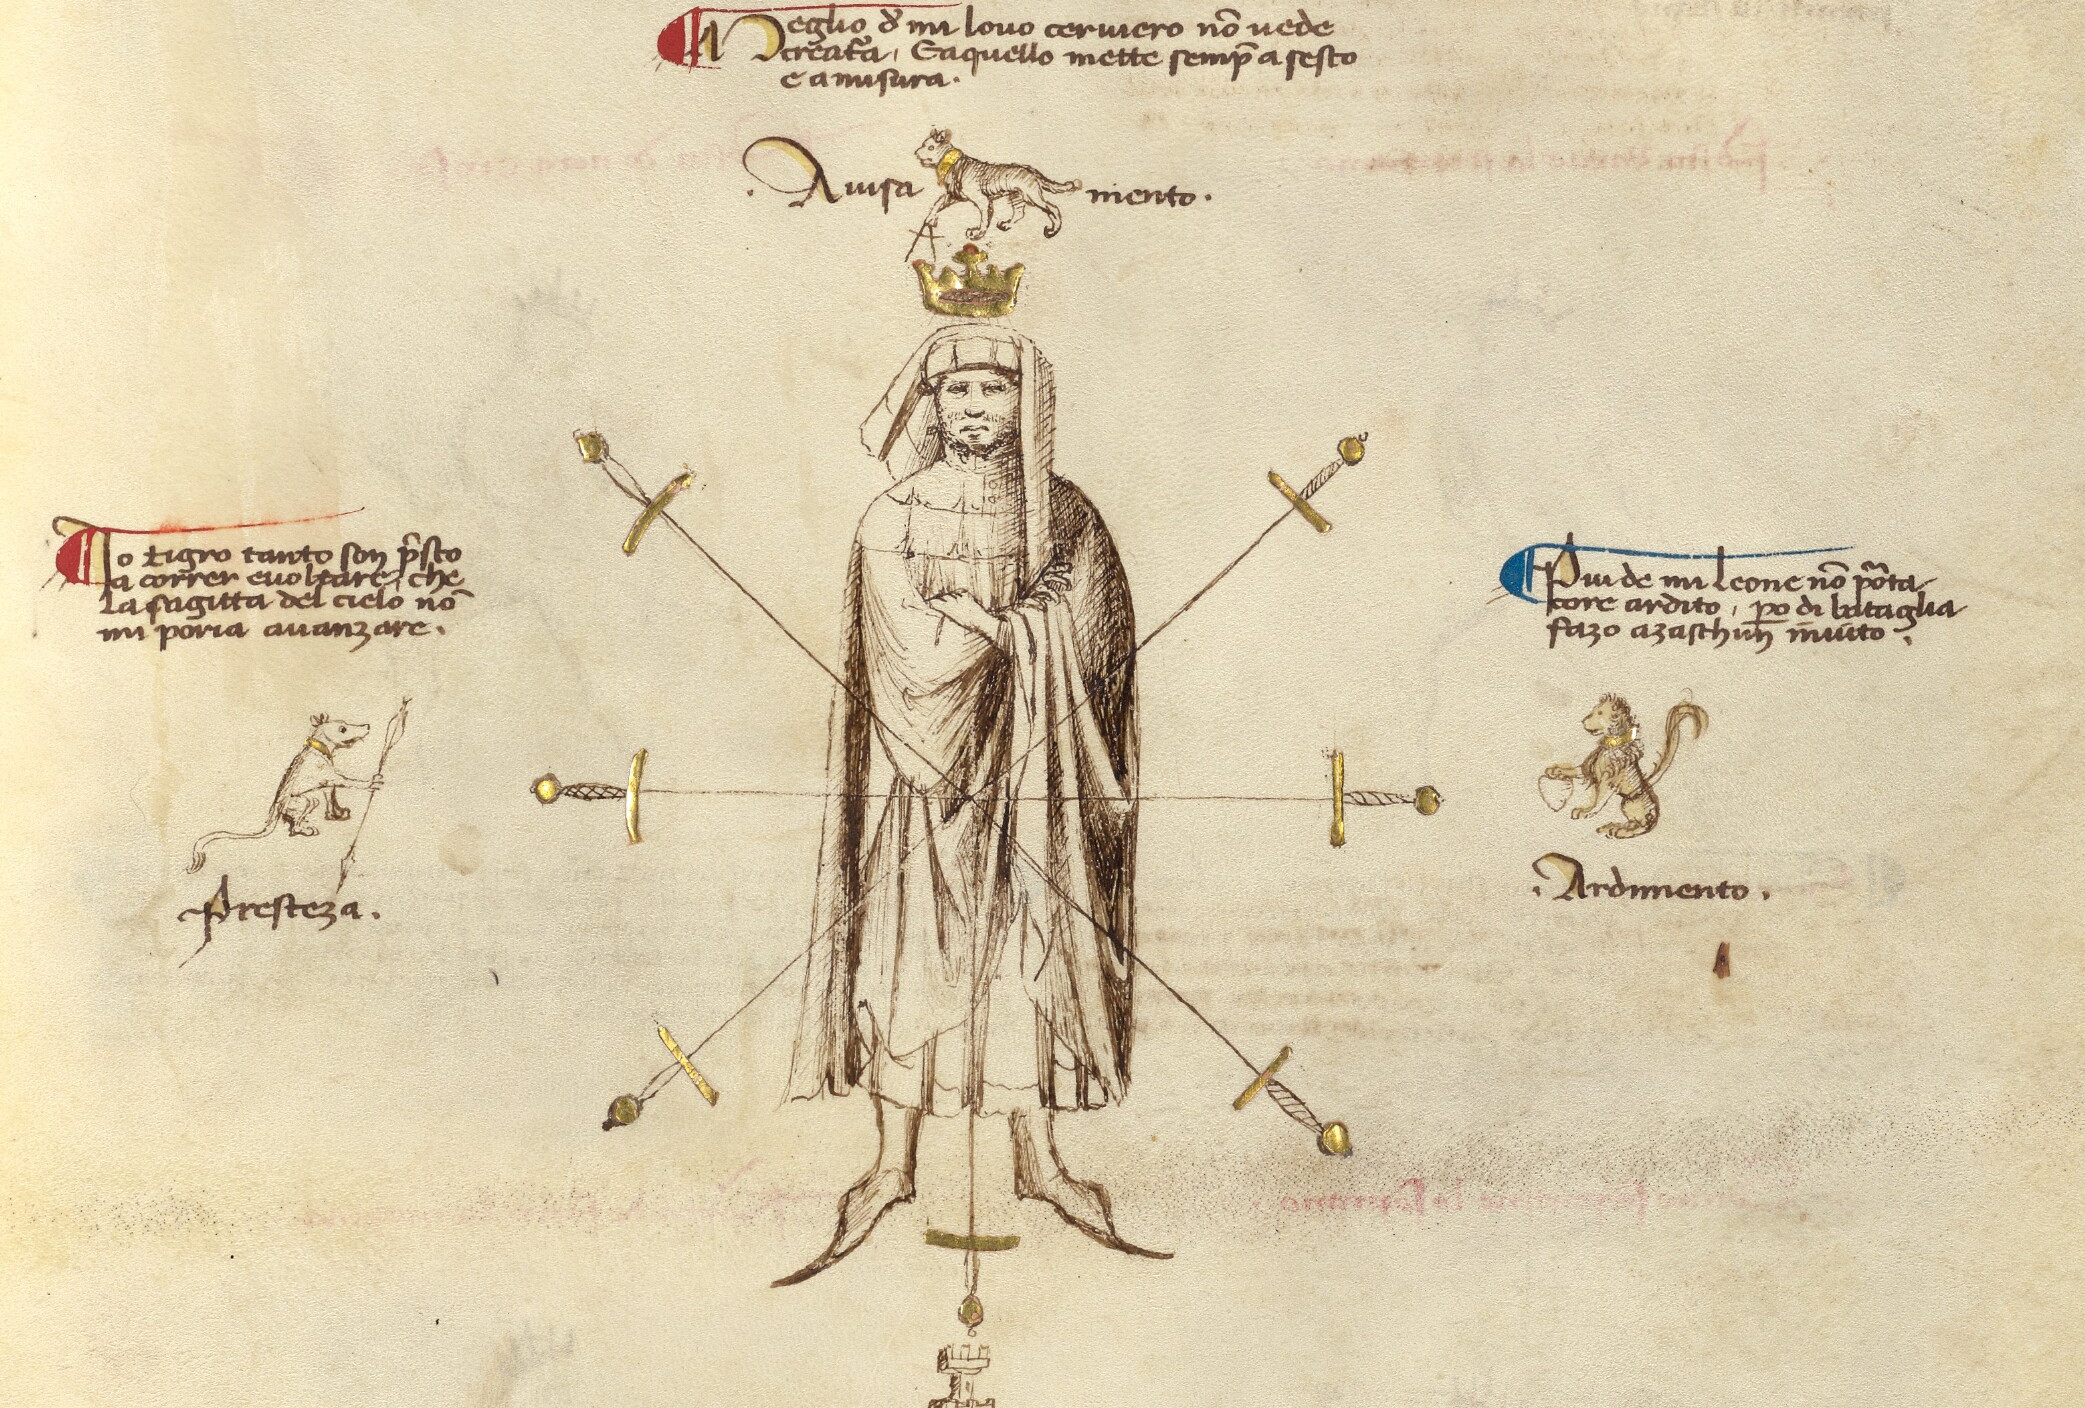 Meglio de mi lovo cerviero nō vede
creatᵃra, Eaquello mette semp̄ a sesto
e a misura.
Avisa mento.
Io tigro tanto son p̄sto
a correr e voltare, che
La sagitta del cielo nō
mi poria avanzare.
Piu de mi Leone nō porta
core ardito, po di bataglia
fazo azaschun invito.
Presteza.
Ardimento.